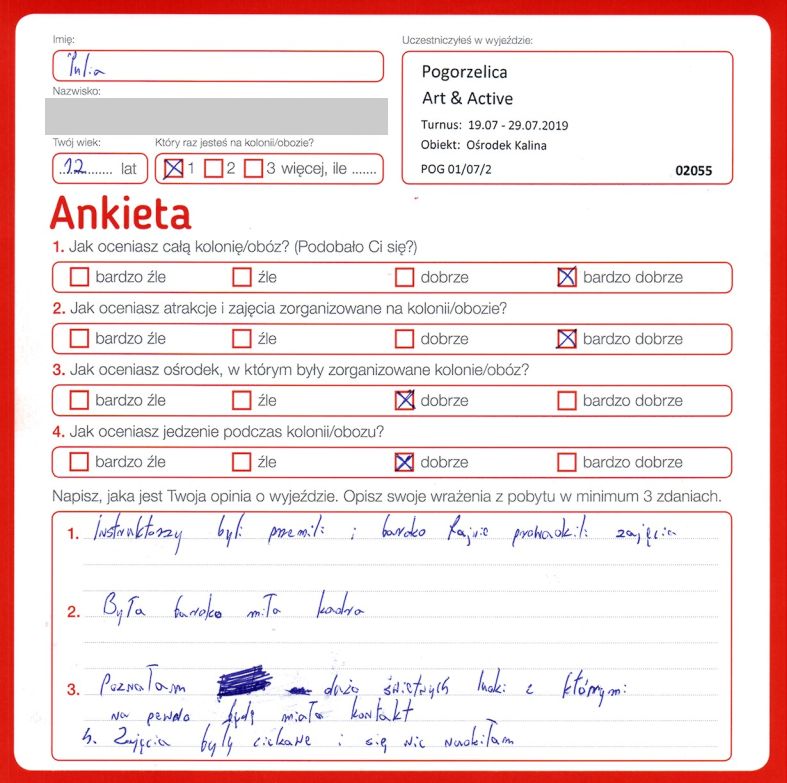 Imię:
Julia
Uczestniczyłeś w wyjeździe:
Pogorzelica
Art & Active
Turnus: 19.07 - 29.07.2019
Obiekt: Ośrodek Kalina
POG 01/07/2
02055
Nazwisko:
Twój wiek:
12 lat
Który raz jesteś na kolonii/obozie?
1 2 3 więcej, ile .......
Ankieta
1. Jak oceniasz całą kolonię/obóz? (Podobało Ci się?)
bardzo źle źle dobrze bardzo dobrze
2. Jak oceniasz atrakcje i zajęcia zorganizowane na kolonii/obozie?
bardzo źle źle dobrze bardzo dobrze
3. Jak oceniasz ośrodek, w którym były zorganizowane kolonie/obóz?
bardzo źle źle dobrze bardzo dobrze
4. Jak oceniasz jedzenie podczas kolonii/obozu?
bardzo źle źle dobrze bardzo dobrze
Napisz, jaka jest Twoja opinia o wyjeździe. Opisz swoje wrażenia z pobytu w minimum 3 zdaniach.
1. Instruktorzy byli przemili i bardzo fajnie prowadzili zajęcia
2. Była bardzo miła kadra
3. Poznałam dużo świetnych ludzi z którymi
na pewno będę miała kontakt
4. Zajęcia były ciekawe i się nie nudziłam